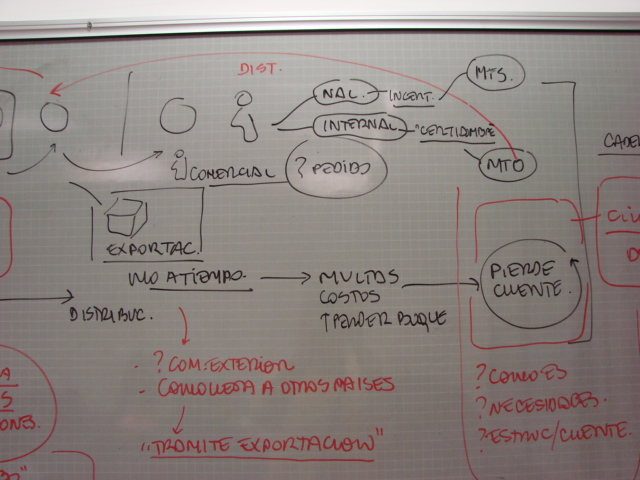 DIST.
MTS.
NAL.
INCERT.
INTERNAL
"CERTIDUMBRE
MTO
CADE
COMERCIAL
? PEDIDO
EXPORTAC.
NO A TIEMPO.
PIERDE
CLIENTE.
MULTAS
COSTOS
↑ PERDER BUQUE
DISTRIBUC.
- ? COM. EXTERIOR
- COMO LLEGA A OTROS PAISES
"TRAMITE EXPORTACION"
? COMO ES
? NECESIDADES.
? ESTRUC/CLIENTE.
A
S
ONES.